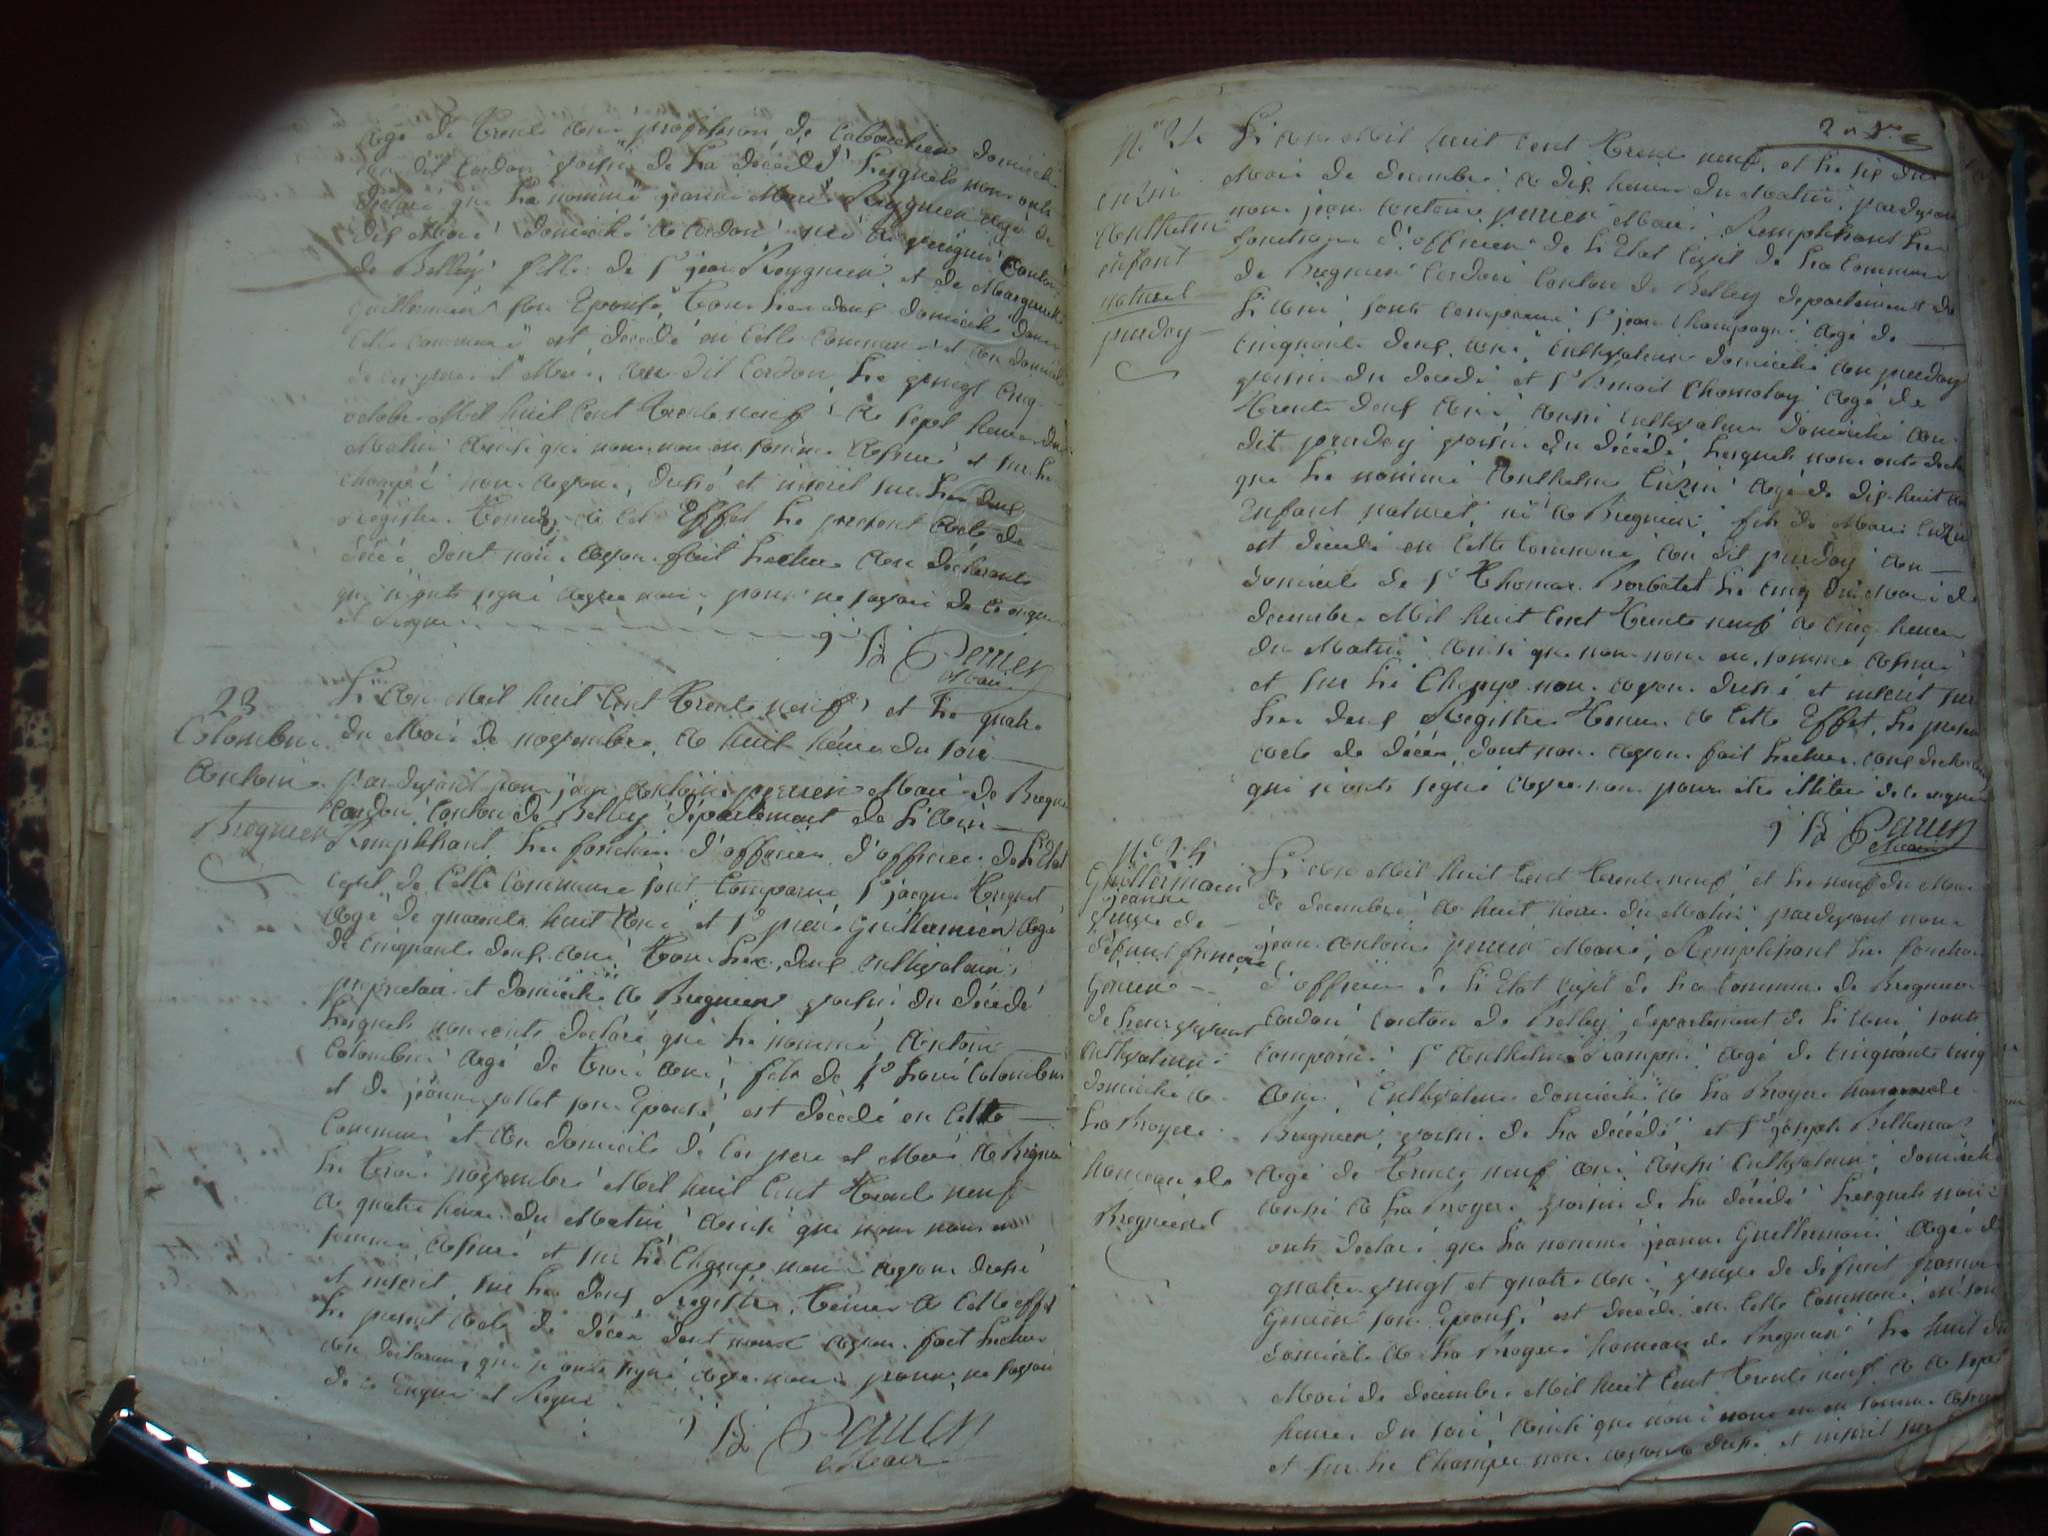 agé de trente ans profession de cabaretier domicilié
au dit Cordon voisin de la décédé lesquels nous onts
déclaré que la nommé jeanne Marie Reygnier agé de
dix Mois domicilié a Cordon né a
de Belley fille de Sr jean Reygnier et de Marguerite
guillermin son Epouse tous les deux domicilié dans
cette commune est décédé en cette commune et au domicile
de au dit Cordon le vingt cinq
octobre Mil huit Cent trente neuf a sept heures du
Matin ainsi que nous nous en somme assuré et sur le
champé nous avons dressé et inscrit sur les deux
registre tenus a cet Effet le present acte de
décé dont nous avons fait lecture aux déclarants
qui n'onts signé avec nous pour ne savoir de ce enquis
et Requis
j B Perrier
Maire
23
Colombin
Antoine
Bregnier
L'an Mil huit Cent trente neuf et le quatre
du Mois de novembre a huit heures du soir
Pardevant nous jean Antoine perrier Maire de Bregnier
Cordon Canton de Belley département de L'Ain
Remplissant les fonction d'officier d'officier de L'Etat
civil de Cette Commune sont Comparus Sr jacque
agé de quarante huit ans et Sr pierre Guillermin agé
de cinquante deux ans tous les deux cultivateur
proprietaire et domicilié a Bregnier voisin du décédé
Lesquels nous onts déclaré que le nommé Antoine
Colombin agé de trois ans fils de Sr Louis Colombin
et de jeanne vallet son Epouse est décédé en Cette
Commune et au domicile de ces pere et Mere a Bregnier
le trois novembre Mil huit Cent trente neuf
a quatre heure du Matin ainsi que nous nous en
somme assuré et sur le Champé nous avons dressé
et inscrit sur les deux Registre tenus a Cette effet
le present acte de décéa dont nous avons fait lecture
aux déclarans qui n'onts signé avec nous pour ne savoir
de ce Enquis et Requis
j B Perrier
Maire
2
N° 24
enfant
naturel
preday
L'an Mil huit Cent trente neuf et le six du
Mois de decembre a dix heures du Matin pardevant
nous jean Antoine perrier Maire Remplissant les
fonctions d'officier de L'Etat Civil de la Commune
de Bregnier Cordon Canton de Belley département de
L'Ain sont Comparus Sr jean Champagne agé de
Cinquante deux ans Cultivateur domicilié au preday
voisin du decedé et Sr Benoit Chamolay agé de
trente deux ans aussi Cultivateur domicilié au
dit preday voisin du décédé Lesquels nous onts déclaré
que le nommé Anthelme agé de dix huit
Enfant naturel né a Bregnier fils de Marie
est décédé en Cette Commune au dit preday au
domicile de Sr Thomas Borbatat le cinq du Mois de
decembre Mil huit Cent trente neuf a cinq heures
du Matin ainsi que nous nous en somme assuré
et sur le Champé nous avons dressé et inscrit sur
les deux Registre tenus a Cette Effet le present
acte de décéa dont nous avons fait lecture aux déclarans
qui n'onts signé avec nous pour etre illitéré de ce enquis
j B Perrier
Maire
N° 25
Guillermain
jeanne
veuve de
défunt
de Leur vivant
cultivateur
domicilié a
la Broyere
hameau de
Bregnier
L'an Mil huit Cent trente neuf et le neuf du Mois
de decembre a huit heures du Matin pardevant nous
jean Antoine perrier Maire Remplissant les fonction
d'officier de L'Etat Civil de la Commune de Bregnier
Cordon Canton de Belley département de L'Ain sonts
comparus Sr Anthelme agé de cinquante cinq
ans Cultivateur domicilié a la Broyere hameau de
Bregnier voisin de la décédé et Sr joseph
agé de trente neuf ans aussi Cultivateur domicilié
aussi a la Broyere voisin de la décédé Lesquels nous
onts déclaré que la nommé jeanne Guillermain agé de
quatre vingt et quatre ans veuve de défunt
son Epouse est décédé en Cette Commune en son
domicile a la Broyere hameau de Bregnier le huit du
Mois de decembre Mil huit Cent trente neuf a sept
heures du soir ainsi que nous nous en somme assuré
et sur le Champé nous avons dressé et inscrit sur